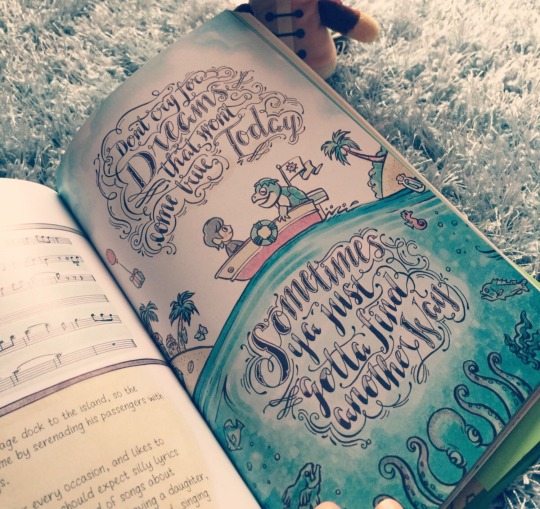 age dock to the island, so the
me by serenading his passengers with
s.
every occasion, and likes to
should expect silly lyrics
d of songs about
ving a daughter,
singing
Don't cry for
Dreams
that won't
come true Today
Sometimes
ya just
gotta find
another Way